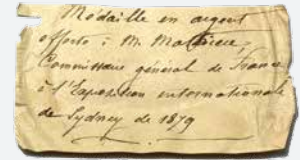 Médaille en argent
offerte : Mr. Mathieu,
Commissaire général de France
à l'Exposition internationale
de Sydney de 1879